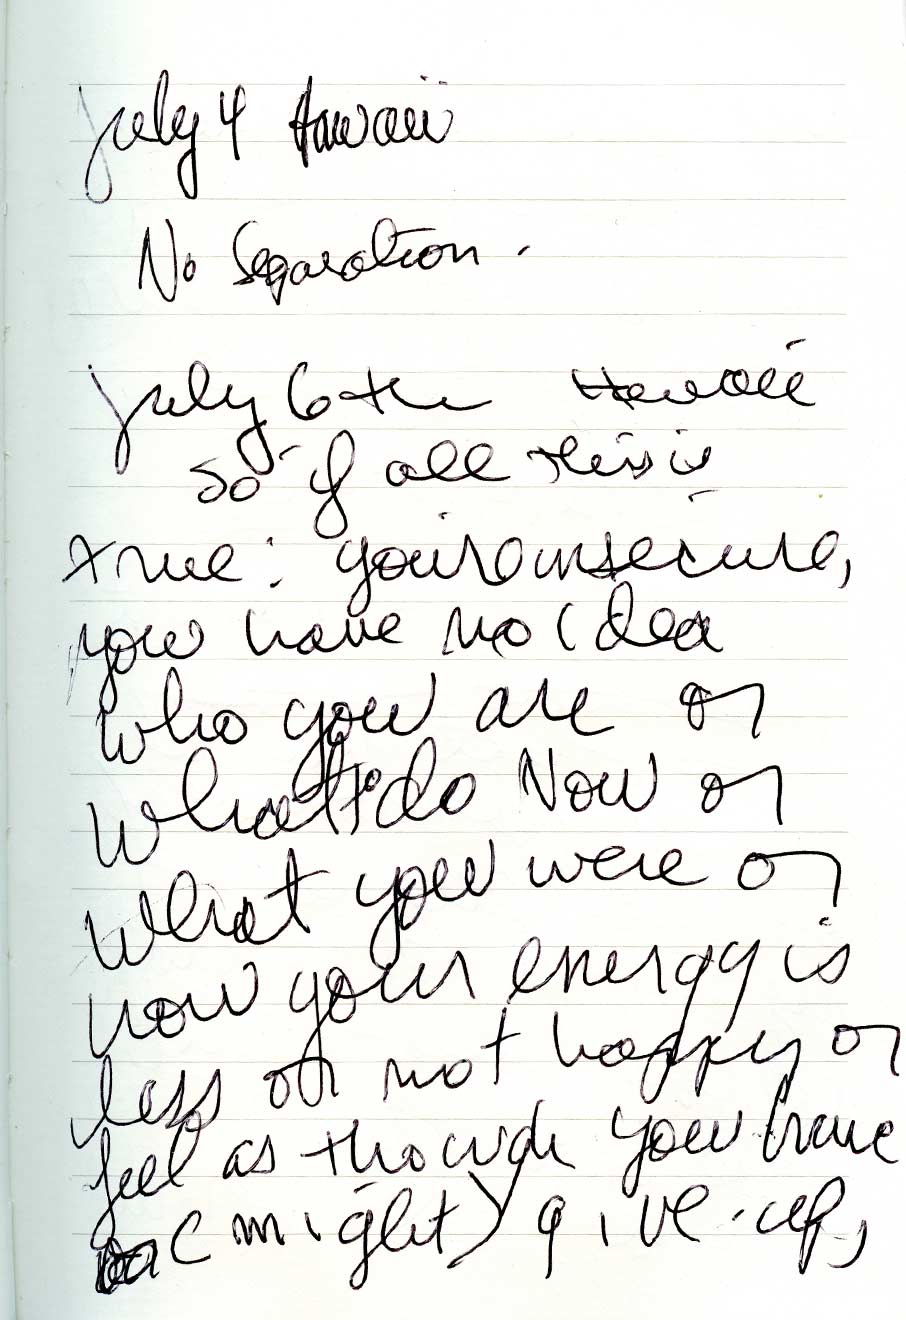 July 4 Hawaii
No Separation.
July 6th Hawaii
So if all this is
true: you're insecure,
you have no idea
who you are or
what to do Now or
what you were or
how your energy is
less or not happy or
feel as though you have
(might) give up,